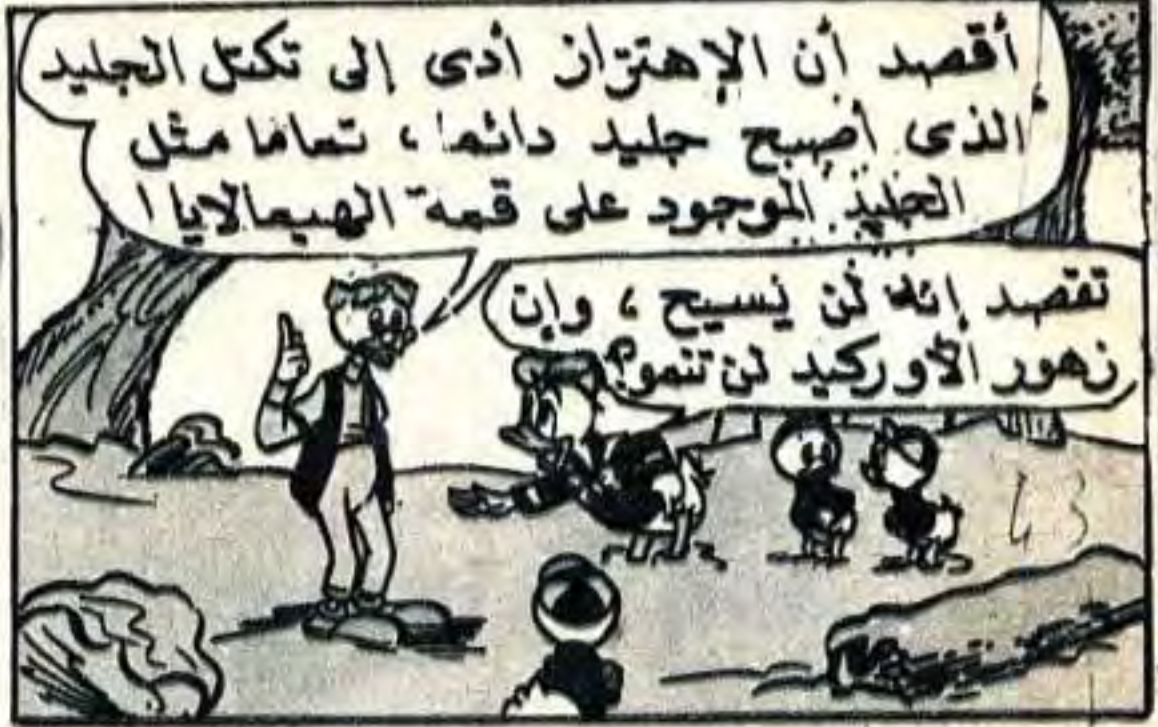 أقصد أن الإهتزاز أدى إلى تكتل الجليد
الذى أصبح جليد دائما ، تماما مثل
الجليد الموجود على قمة الهيمالايا !
تقصد إنه لن يسيح ، وإن
زهور الأوركيد لن تنمو؟
43